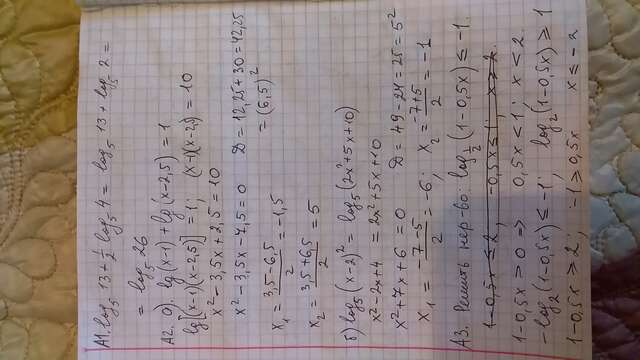 А1. log₅ 13 + ½ log₅ 4 = log₅ 13 + log₅ 2 =
= log₅ 26
А2. а). lg(x-1) + lg(x-2,5) = 1
lg[(x-1)(x-2,5)] = 1; (x-1)(x-2,5) = 10
x² - 3,5x + 2,5 = 10
x² - 3,5x - 7,5 = 0 D = 12,25 + 30 = 42,25
= (6,5)²
x₁ = (3,5 - 6,5)/2 = -1,5
x₂ = (3,5 + 6,5)/2 = 5
б) log₅(x-2)² = log₅(2x² + 5x + 10)
x² - 2x + 4 = 2x² + 5x + 10
x² + 7x + 6 = 0 D = 49 - 24 = 25 = 5²
x₁ = (-7 - 5)/2 = -6; x₂ = (-7 + 5)/2 = -1
А3. Решить нер-во: log_½ (1 - 0,5x) ≤ -1.
1 - 0,5x ≤ 2, -0,5x ≤ 1; x ≥ 2.
1 - 0,5x > 0 => 0,5x < 1; x < 2.
-log₂(1 - 0,5x) ≤ -1; log₂(1 - 0,5x) ≥ 1
1 - 0,5x ≥ 2; -1 ≥ 0,5x x ≤ -2